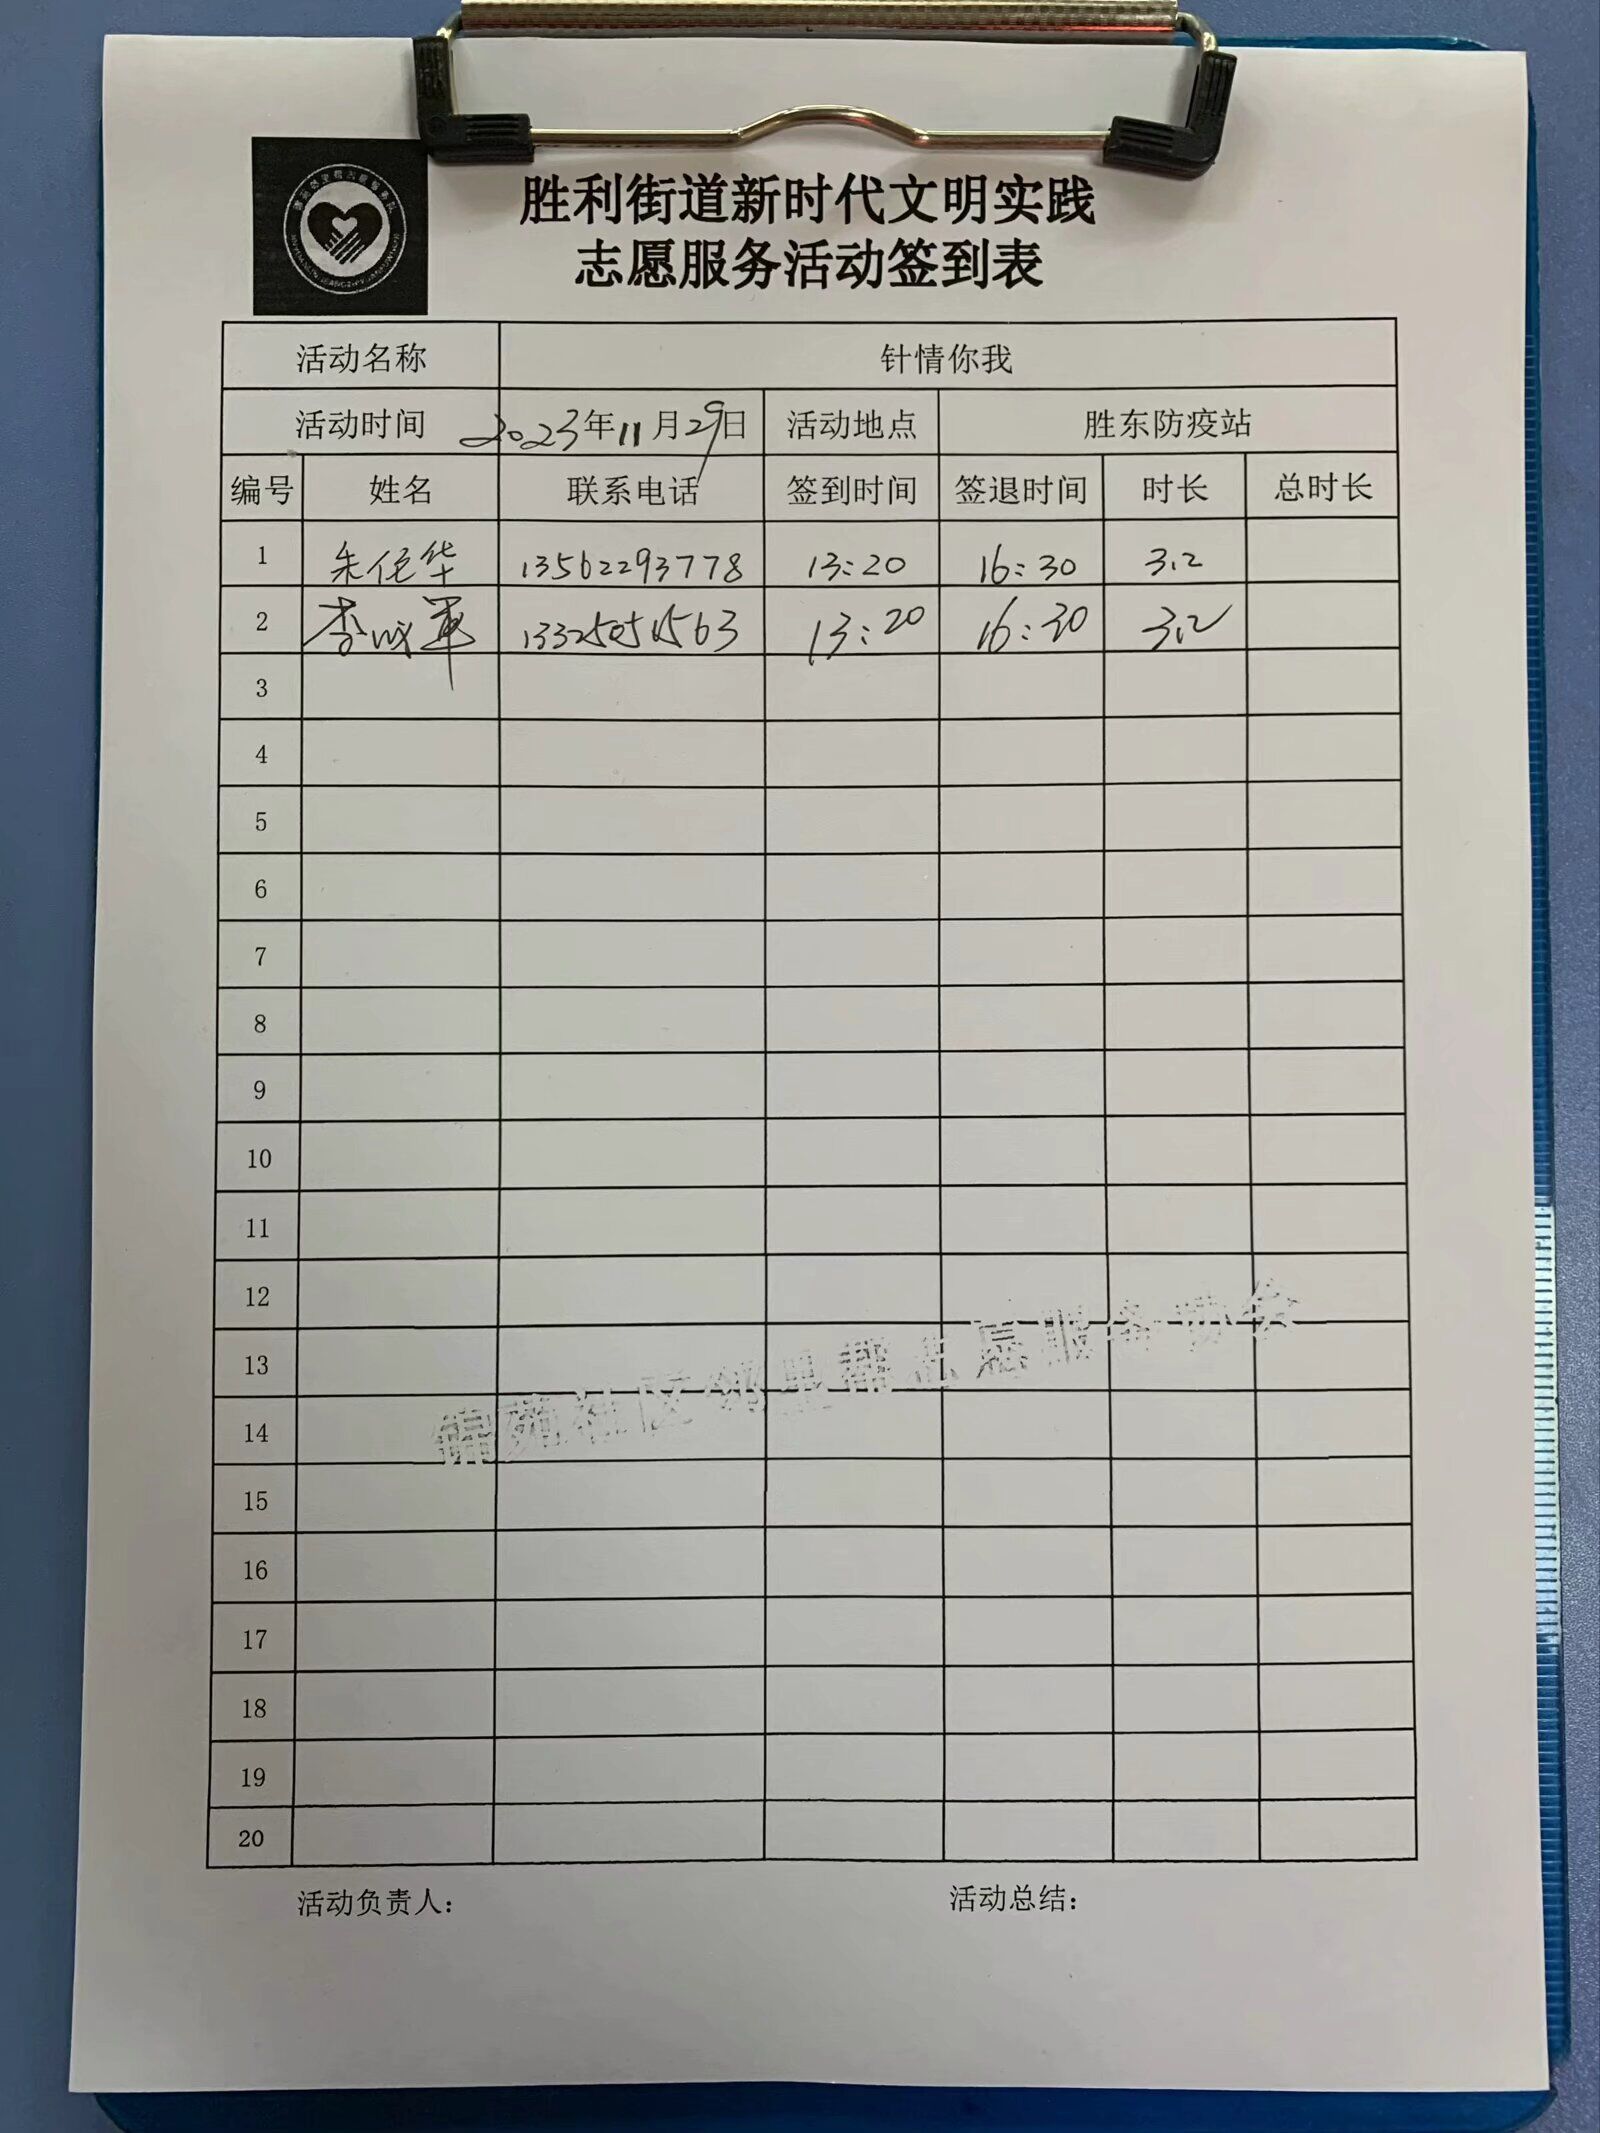 胜利街道新时代文明实践
志愿服务活动签到表
活动名称 针情你我
活动时间 2023年11月29日 活动地点 胜东防疫站
编号 姓名 联系电话 签到时间 签退时间 时长 总时长
1 朱 华 13562293778 13:20 16:30 3.2
2 李成军 13:20 16:30 3.2
3
4
5
6
7
8
9
10
11
12
13
14
15
16
17
18
19
20
锦苑社区邻里帮志愿服务协会
活动负责人: 活动总结: